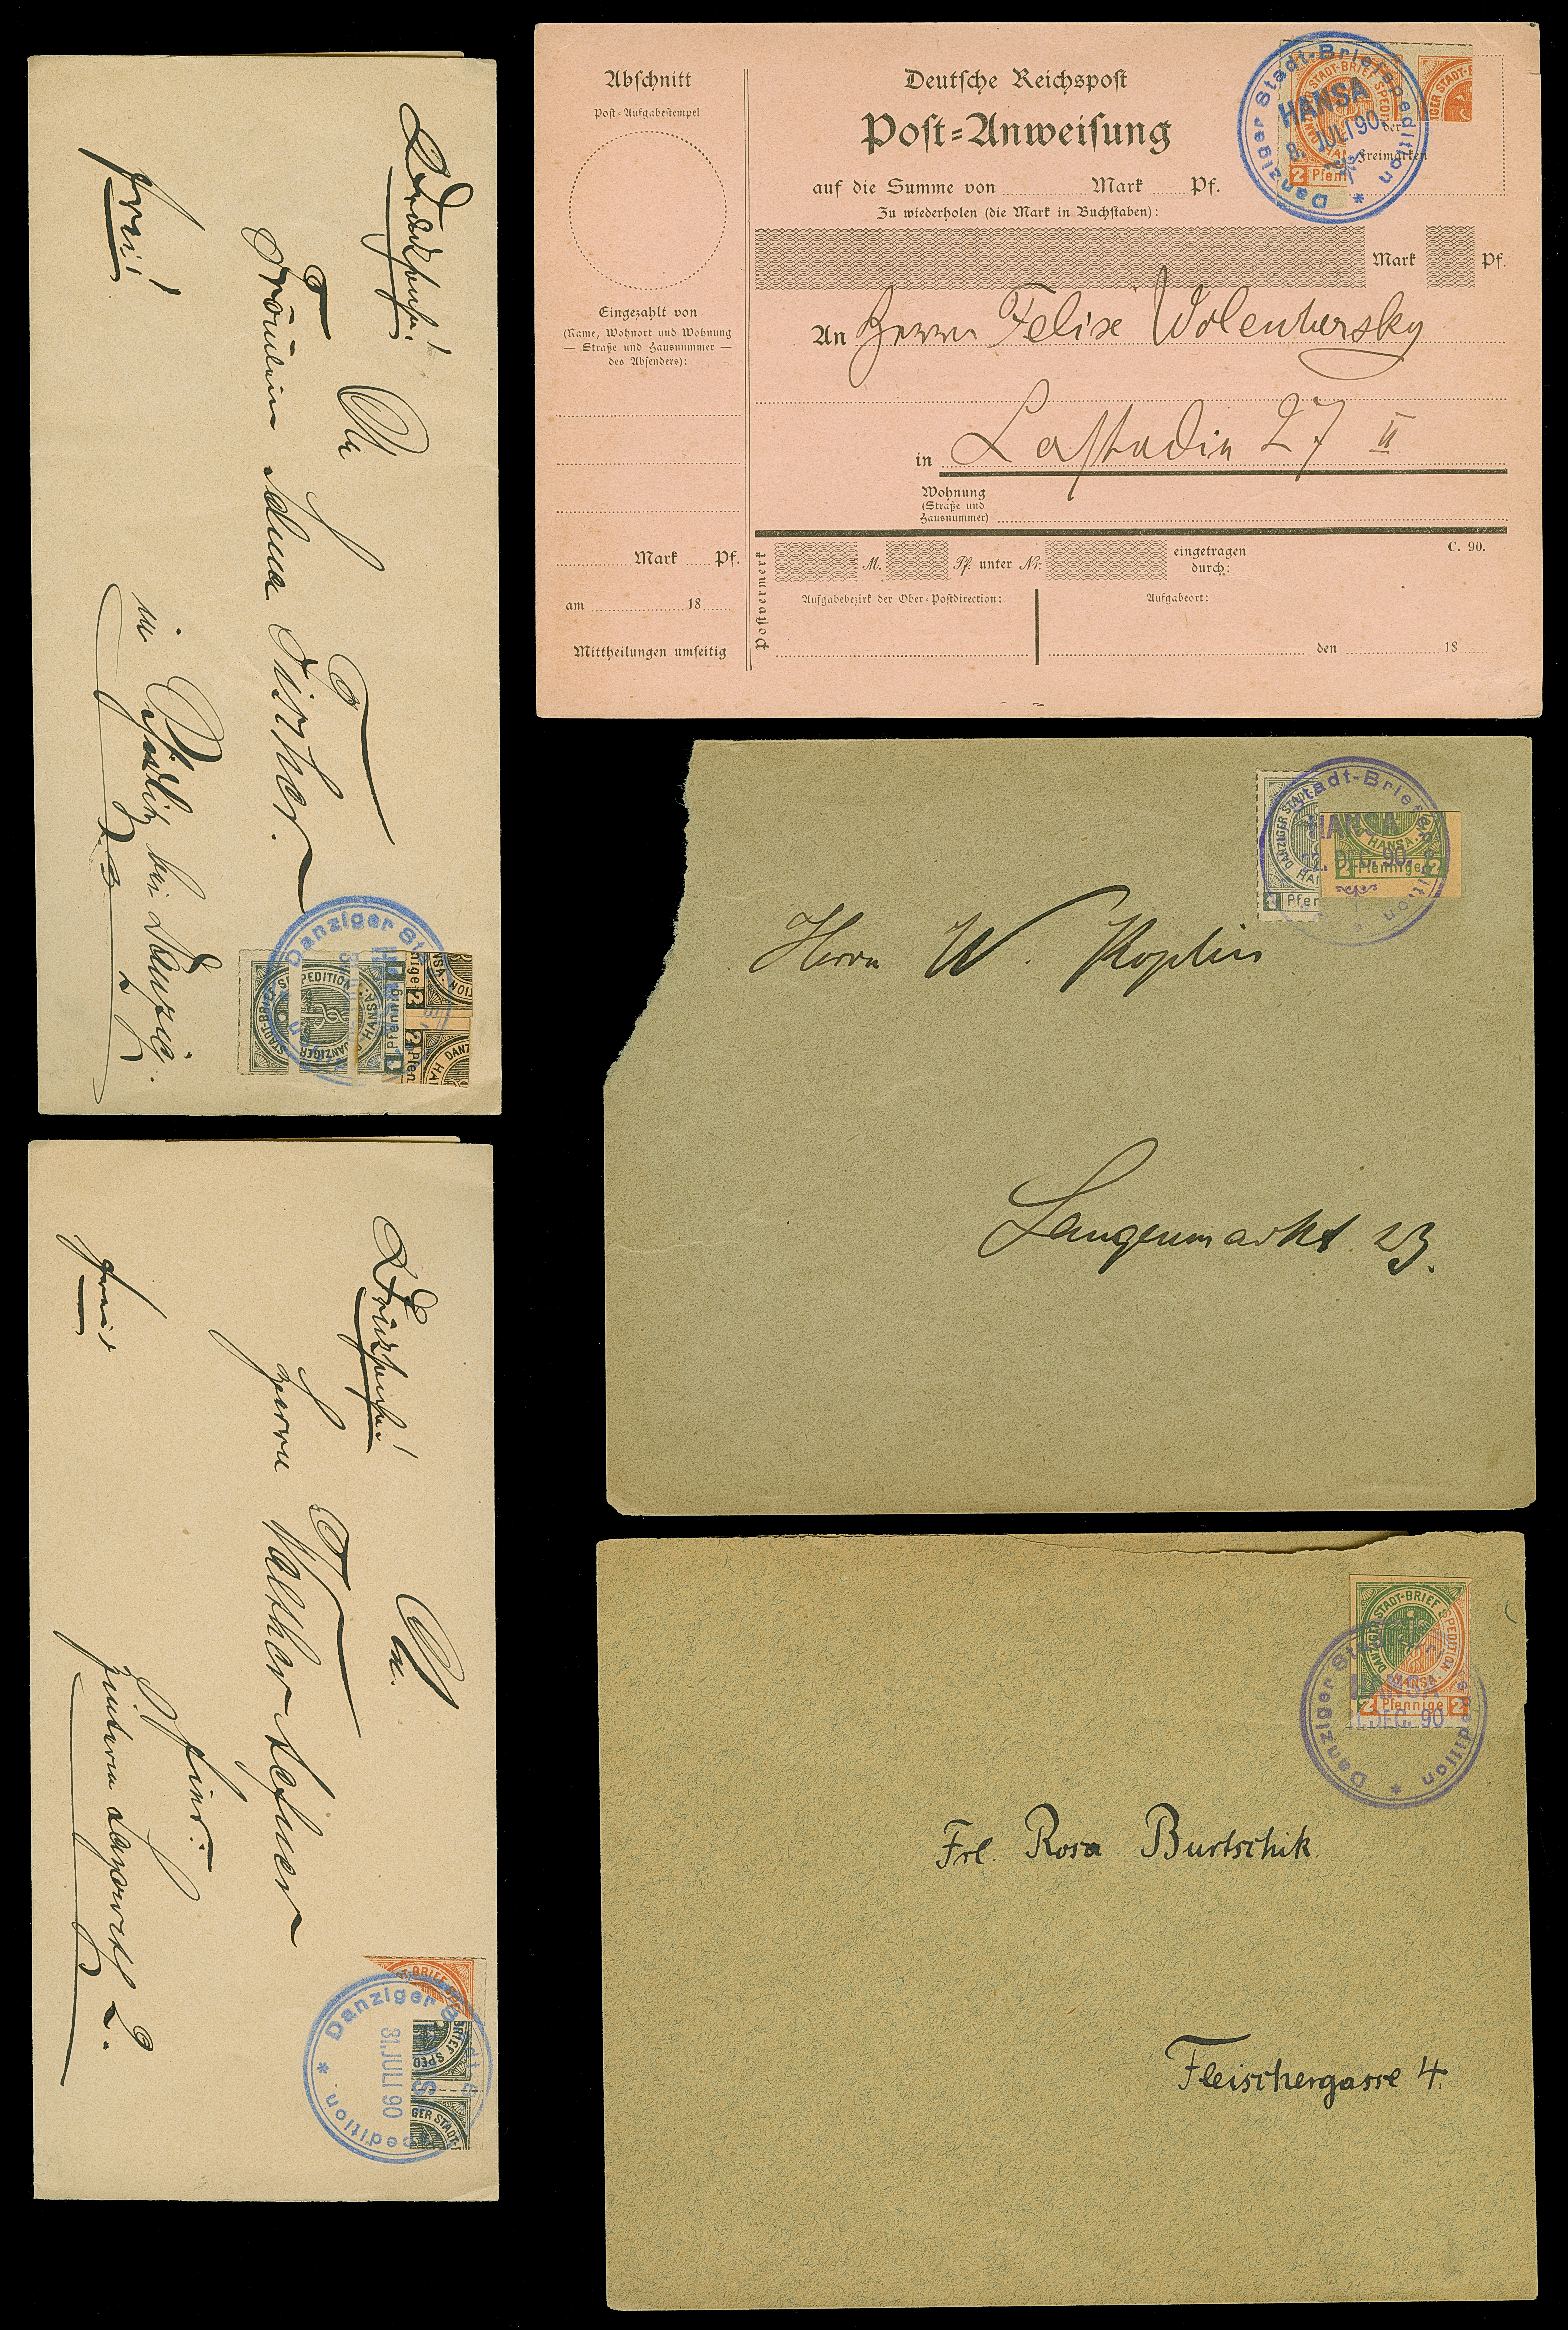 Drucksache!
An
Fräulein Anna Fischer.
in Schidlitz bei Danzig.
frei!
Danziger St
Pfennig
Abschnitt
Post-Aufgabestempel
Eingezahlt von
(Name, Wohnort und Wohnung
— Straße und Hausnummer —
des Absenders):
Mark Pf.
am 18
Mittheilungen umseitig
Deutsche Reichspost
Post-Anweisung
auf die Summe von Mark Pf.
Zu wiederholen (die Mark in Buchstaben):
Mark Pf.
An Herrn Felix Wolenhersky
in Lastadie 27 II
Wohnung
(Straße und
Hausnummer)
Postvermerk
M. Pf. unter Nr. eingetragen
durch:
C. 90.
Aufgabebezirk der Ober-Postdirection:
Aufgabeort:
den 18
Danziger Stadt-Briefspedition *
HANSA
8. JULI 90.
der
Freimarken
2 Pfen
Stadt-Briefspedition *
HANSA
DEC. 90.
DANZIGER STADT-
HANSA.
2 Pfennige 2
Herrn W. Koplin
Langenmarkt 23.
Drucksache!
An.
Herrn Walther
hier.
frei!
Danziger Stadt
31. JULI 90
DANZIGER STADT-BRIEF SPEDITION
HANSA.
2 Pfennige 2
DEC. 90
Frl. Rosa Burtschik
Fleischergasse 4.